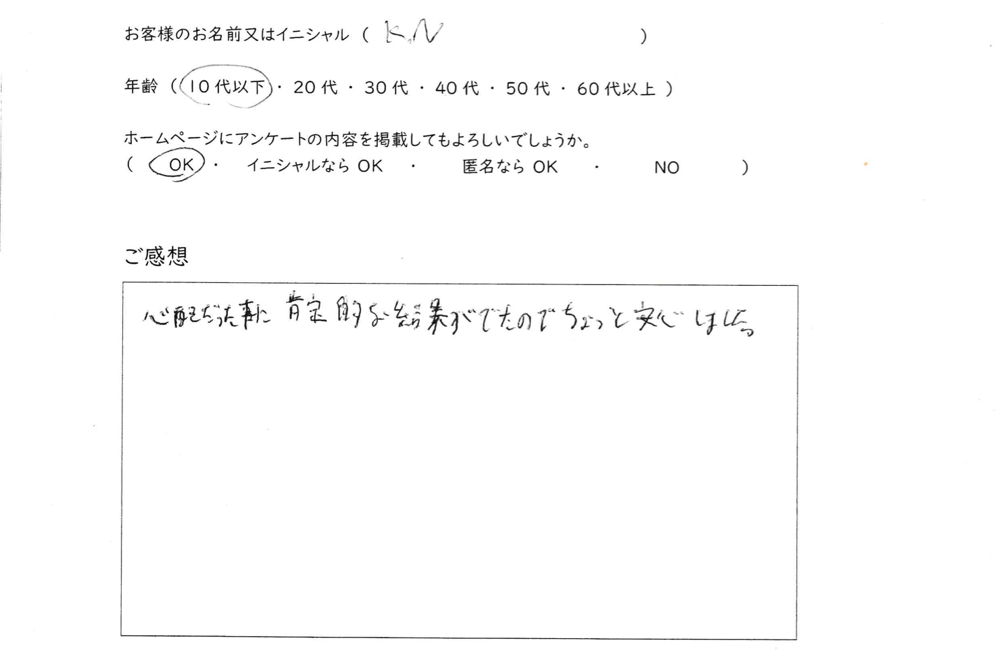 お客様のお名前又はイニシャル ( K.N )
年齢 ( 10代以下 ・ 20代 ・ 30代 ・ 40代 ・ 50代 ・ 60代以上 )
ホームページにアンケートの内容を掲載してもよろしいでしょうか。
( OK ・ イニシャルなら OK ・ 匿名なら OK ・ NO )
ご感想
心配だった事に 肯定的な結果がでたのでちょっと安心しました。